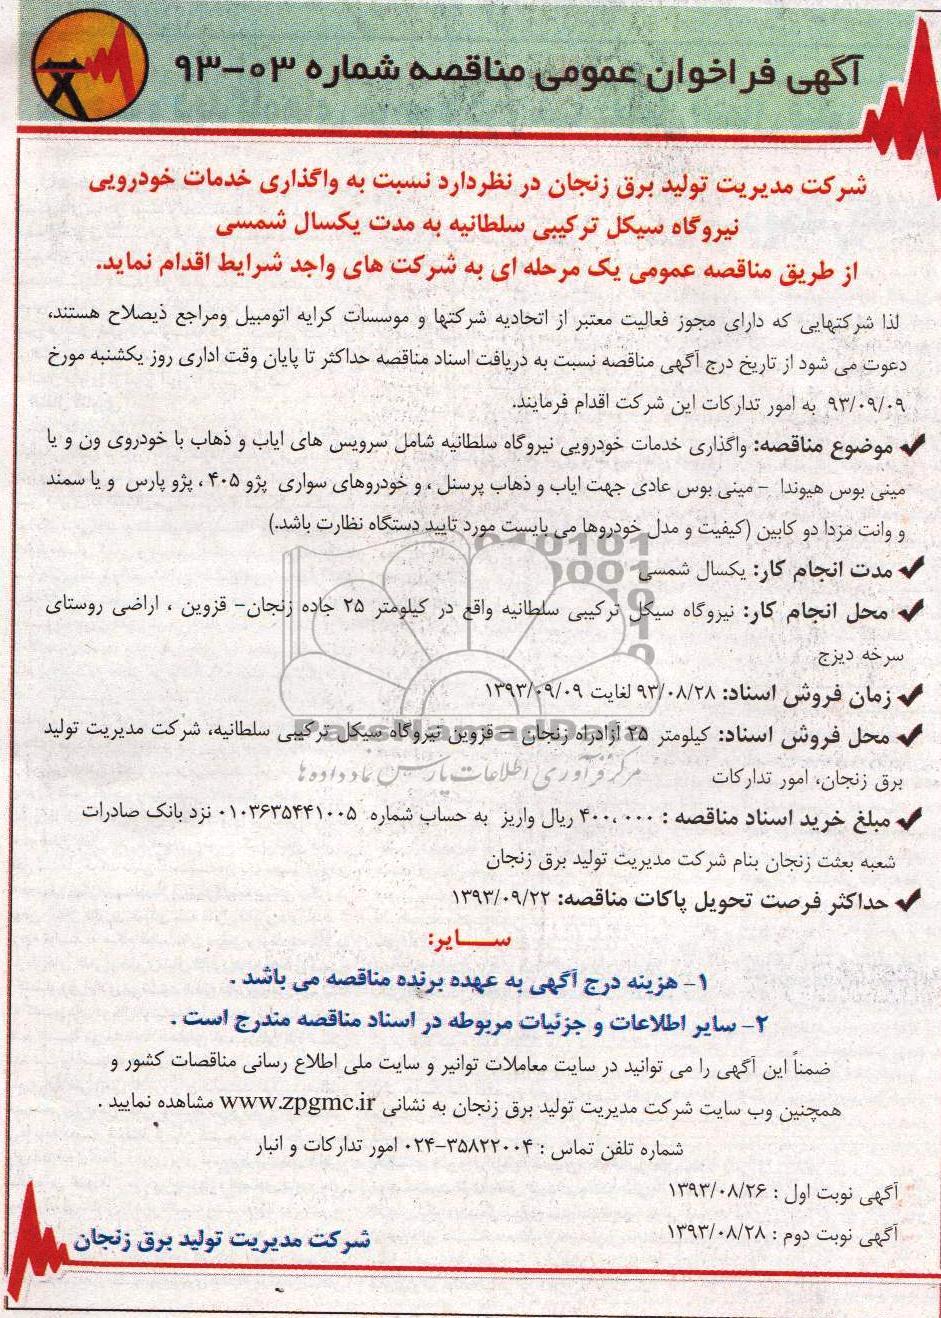 آگهی فراخوان عمومی مناقصه شماره ۰۳-۹۳
شرکت مدیریت تولید برق زنجان در نظردارد نسبت به واگذاری خدمات خودرویی
نیروگاه سیکل ترکیبی سلطانیه به مدت یکسال شمسی
از طریق مناقصه عمومی یک مرحله ای به شرکت های واجد شرایط اقدام نماید.
لذا شرکتهایی که دارای مجوز فعالیت معتبر از اتحادیه شرکتها و موسسات کرایه اتومبیل ومراجع ذیصلاح هستند،
دعوت می شود از تاریخ درج آگهی مناقصه نسبت به دریافت اسناد مناقصه حداکثر تا پایان وقت اداری روز یکشنبه مورخ
۹۳/۰۹/۰۹ به امور تدارکات این شرکت اقدام فرمایند.
✔ موضوع مناقصه: واگذاری خدمات خودرویی نیروگاه سلطانیه شامل سرویس های ایاب و ذهاب با خودروی ون و یا
مینی بوس هیوندا - مینی بوس عادی جهت ایاب و ذهاب پرسنل ، و خودروهای سواری پژو ۴۰۵ ، پژو پارس و یا سمند
و وانت مزدا دو کابین (کیفیت و مدل خودروها می بایست مورد تایید دستگاه نظارت باشد.)
✔ مدت انجام کار: یکسال شمسی
✔ محل انجام کار: نیروگاه سیکل ترکیبی سلطانیه واقع در کیلومتر ۲۵ جاده زنجان- قزوین ، اراضی روستای
سرخه دیزج
✔ زمان فروش اسناد: ۹۳/۰۸/۲۸ لغایت ۱۳۹۳/۰۹/۰۹
ParsNamadData
✔ محل فروش اسناد: کیلومتر ۲۵ آزادراه زنجان - قزوین نیروگاه سیکل ترکیبی سلطانیه، شرکت مدیریت تولید
مرکز فرآوری اطلاعات پارس نماد داده ها
برق زنجان، امور تدارکات
✔ مبلغ خرید اسناد مناقصه : ۴۰۰،۰۰۰ ریال واریز به حساب شماره ۰۱۰۳۶۳۵۴۴۱۰۰۵ نزد بانک صادرات
شعبه بعثت زنجان بنام شرکت مدیریت تولید برق زنجان
✔ حداکثر فرصت تحویل پاکات مناقصه: ۱۳۹۳/۰۹/۲۲
ســـایر:
۱- هزینه درج آگهی به عهده برنده مناقصه می باشد .
۲- سایر اطلاعات و جزئیات مربوطه در اسناد مناقصه مندرج است .
ضمناً این آگهی را می توانید در سایت معاملات توانیر و سایت ملی اطلاع رسانی مناقصات کشور و
همچنین وب سایت شرکت مدیریت تولید برق زنجان به نشانی www.zpgmc.ir مشاهده نمایید .
شماره تلفن تماس : ۳۵۸۲۲۰۰۴-۰۲۴ امور تدارکات و انبار
آگهی نوبت اول : ۱۳۹۳/۰۸/۲۶
آگهی نوبت دوم : ۱۳۹۳/۰۸/۲۸
شرکت مدیریت تولید برق زنجان